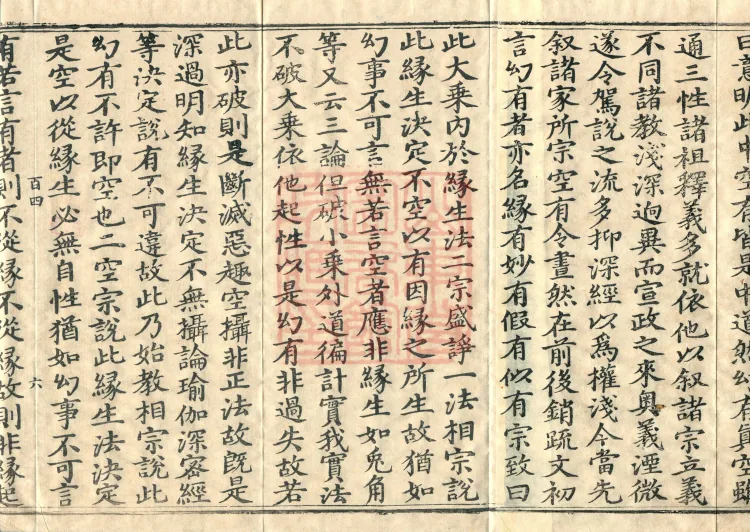 曰意明此中空有皆是中道然幻有真空雖
通三性諸祖釋義多就依他以叙諸宗立義
不同諸教淺深迥異而宣政之來奥義湮微
遂令駕説之流多抑深經以爲權淺今當先
叙諸家所宗空有令晝然在前後銷疏文初
言幻有者亦名緣有妙有假有似有宗致曰
此大乘内於緣生法二宗盛諍一法相宗説
此緣生決定不空以有因緣之所生故猶如
幻事不可言無若言空者應非緣生如兎角
等又云三論但破小乘外道徧計實我實法
不破大乘依他起性以是幻有非過失故若
此亦破則是斷滅惡趣空攝非正法故既是
深過明知緣生決定不無攝論瑜伽深密經
等決定説有不可違故此乃始教相宗説此
幻有不許即空也二空宗説此緣生法決定
是空以從緣生必無自性猶如幻事不可言
百四
六
有若言有者則不從緣不從緣故則非緣起